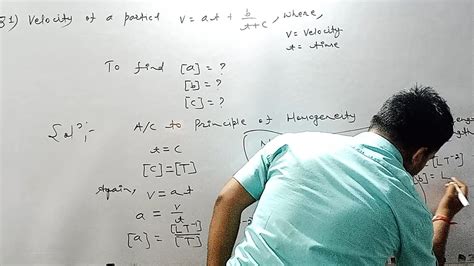 Velocity of a particl v = at + b/t+c, where,
v = velocity
t = time
To find [a] = ?
[b] = ?
[c] = ?
Solⁿ:- A/C to Principle of Homogeneity
t = c
[c] = [T]
Again, v = at
a = v/t
[a] = [LT⁻¹]/[T]
[LT⁻²]
[b] = L